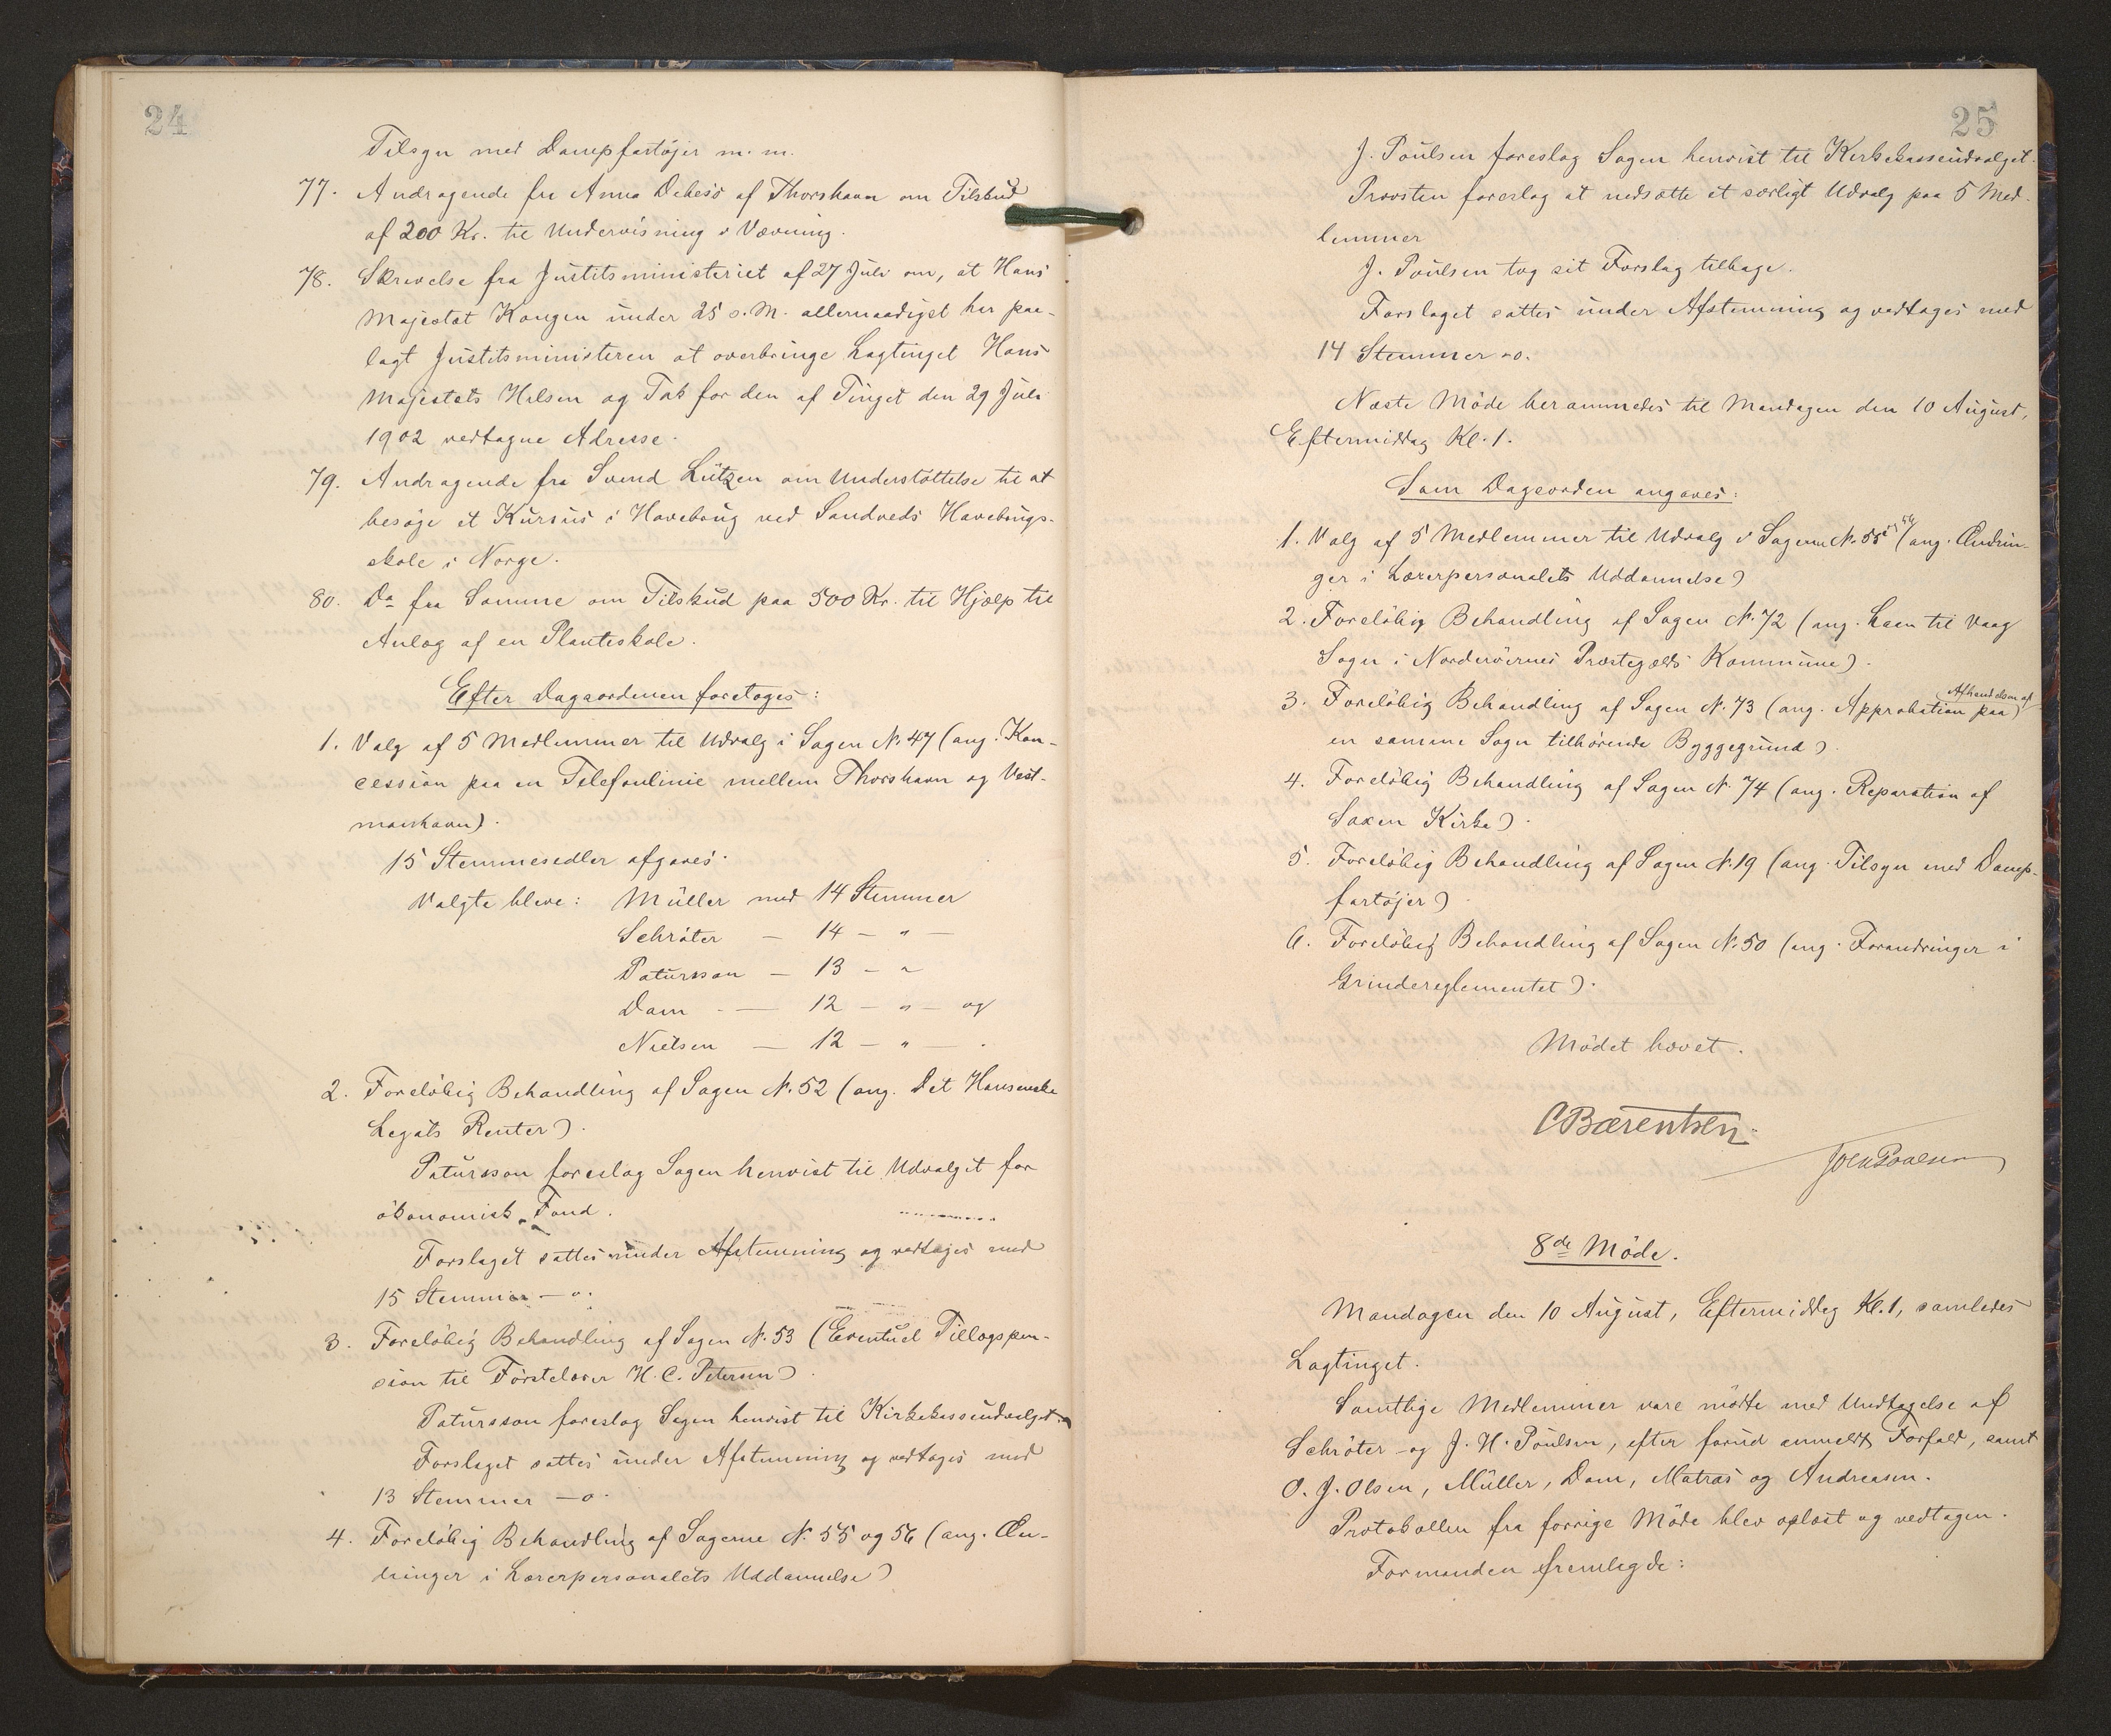 24
Tilsyn med Dampfartøjer m. m.
77. Andragende fra Anna Debes's af Thorshavn om Tilskud
af 200 Kr. til Undervisning i Vævning.
78. Skrivelse fra Justitsministeriet af 27 Juli om, at Hans
Majestæt Kongen under 25 s. M. allernaadigst har paa-
lagt Justitsministeren at overbringe Lagtinget Hans
Majestæts Hilsen og Tak for den af Tinget den 29 Juli
1902 vedtagne Adresse.
79. Andragende fra Svend Lützen om Understøttelse til at
besøge et Kursus i Havebrug ved Sandveds Havebrugs-
skole i Norge.
80. Do fra Samme om Tilskud paa 500 Kr. til Hjælp til
Anlæg af en Planteskole.
Efter Dagsordenen foretoges:
1. Valg af 5 Medlemmer til Udvalg i Sagen N. 47 (ang. Kon-
cession paa en Telefonlinie mellem Thorshavn og Vest-
manhavn).
15 Stemmesedler afgaves.
Valgte bleve: Müller med 14 Stemmer
Schrøter — 14 — " —
Patursson — 13 — "
Dam — 12 — " — og
Nielsen — 12 — " — .
2. Foreløbig Behandling af Sagen N. 52 (ang. det Hansenske
Legats Renter).
Patursson foreslog Sagen henvist til Udvalget for
økonomisk Fond.
Forslaget sattes under Afstemning og vedtoges med
15 Stemmer — o.
3. Foreløbig Behandling af Sagen N. 53 (Eventuel Tillægspen-
sion til Førstelærer H. C. Petersen).
Patursson foreslog Sagen henvist til Kirkekasseudvalget.
Forslaget sattes under Afstemning og vedtoges med
13 Stemmer — o.
4. Foreløbig Behandling af Sagerne N. 55 og 56 (ang. Æn-
dringer i Lærerpersonalets Uddannelse)
25
J. Poulsen foreslog Sagen henvist til Kirkekasseudvalget.
Provsten foreslog at nedsætte et særligt Udvalg paa 5 Med-
lemmer
J. Poulsen tog sit Forslag tilbage.
Forslaget sattes under Afstemning og vedtoges med
14 Stemmer - o.
Næste Møde berammedes til Mandagen den 10 August,
Eftermiddag Kl. 1.
Som Dagsorden angaves:
1. Valg af 5 Medlemmer til Udvalg i Sagerne N. 55 og 56 (ang. Ændrin-
ger i Lærerpersonalets Uddannelse)
2. Foreløbig Behandling af Sagen N. 72 (ang. Laan til Vaag
Sogn i Norderøernes Præstegælds Kommune).
3. Foreløbig Behandling af Sagen N. 73 (ang. Approbation paa Afhændelsen af
en samme Sogn tilhørende Byggegrund).
4. Foreløbig Behandling af Sagen N. 74 (ang. Reparation af
Saxen Kirke).
5. Foreløbig Behandling af Sagen N. 19 (ang. Tilsyn med Damp-
fartøjer).
6. Foreløbig Behandling af Sagen N. 50 (ang. Forandringer i
Grindereglementet).
Mødet hævet.
C Bærentsen.
Joen Poulsen
8de Møde.
Mandagen den 10 August, Eftermiddag Kl. 1, samledes
Lagtinget.
Samtlige Medlemmer vare mødte med Undtagelse af
Schrøter og J. H. Poulsen, efter forud anmeldt Forfald, samt
O. J. Olsen, Müller, Dam, Matras og Andreasen.
Protokollen fra forrige Møde blev oplæst og vedtagen.
Formanden fremlagde: